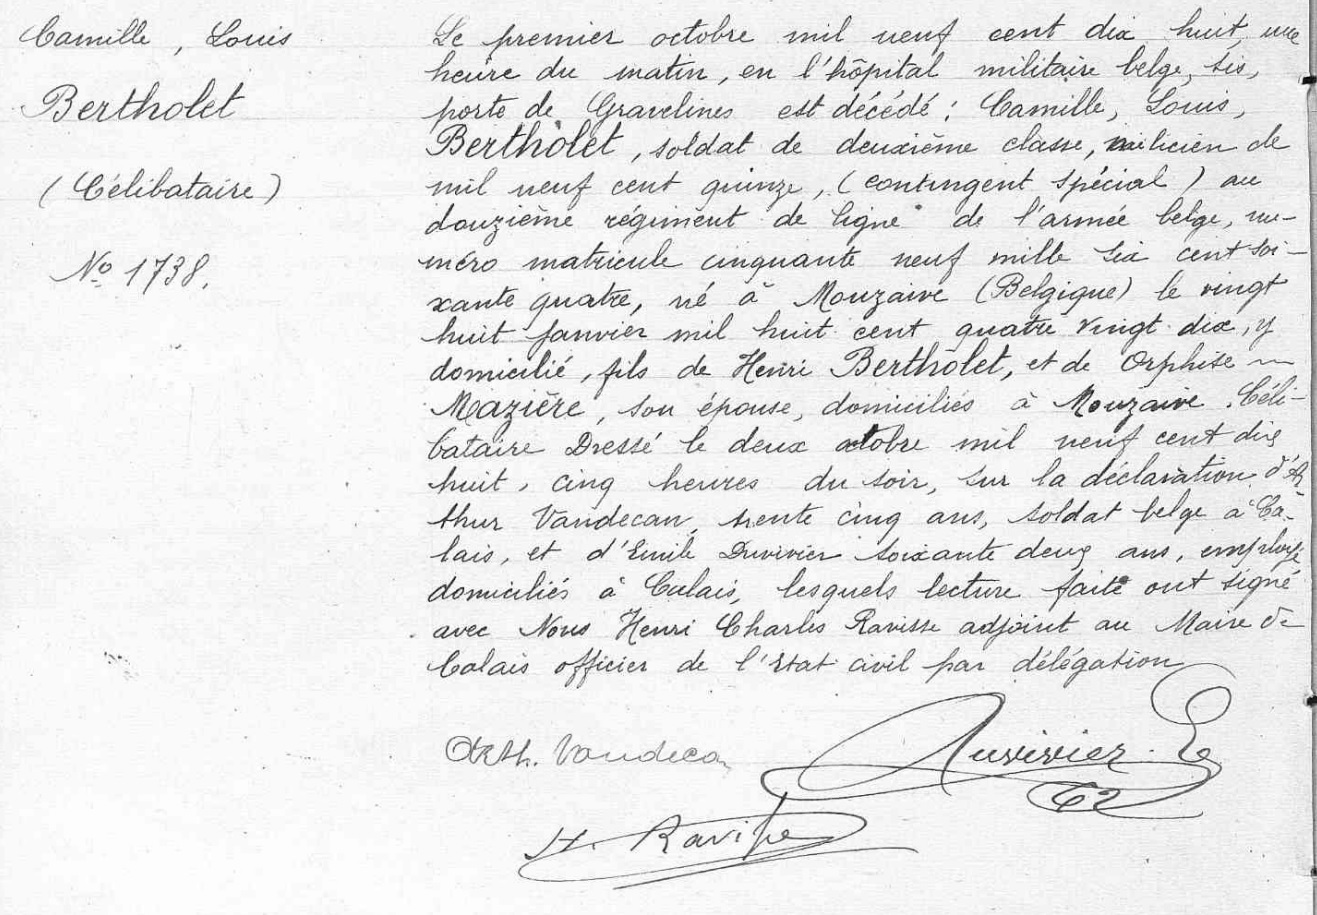 Camille, Louis
Bertholet
(Célibataire)
No 1738.
Le premier octobre mil neuf cent dix huit, une
heure du matin, en l'hôpital militaire belge, sis,
porte de Gravelines est décédé : Camille, Louis,
Bertholet, soldat de deuxième classe, milicien de
mil neuf cent quinze, (contingent spécial) au
douzième régiment de ligne de l'armée belge, nu-
méro matricule cinquante neuf mille six cent soi-
xante quatre, né à Mouzaive (Belgique) le vingt
huit janvier mil huit cent quatre vingt dix, y
domicilié, fils de Henri Bertholet, et de Orphise
Mazière, son épouse, domiciliés à Mouzaive. Céli-
bataire Dressé le deux octobre mil neuf cent dix
huit, cinq heures du soir, sur la déclaration d'Ar
thur Vandecan, trente cinq ans, soldat belge à Ca-
lais, et d'Emile Duvivier soixante deux ans, employé
domiciliés à Calais, lesquels lecture faite ont signé
avec Nous Henri Charles Ravisse adjoint au Maire de
Calais officier de l'Etat civil par délégation
Arth. Vandecan
Duvivier E
62
H. Ravisse